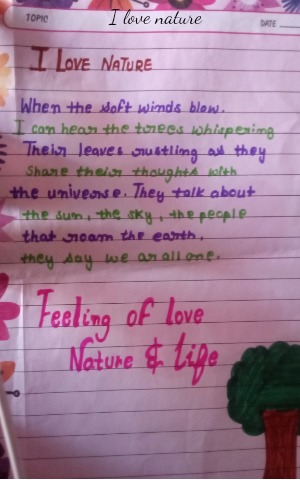 TOPIC
I love nature
DATE
I LOVE NATURE
When the soft winds blow.
I can hear the trees whispering
Their leaves rustling as they
share their thoughts with
the universe. They talk about
the sun, the sky, the people
that roam the earth,
they say we ar all one.
Feeling of love
Nature & life